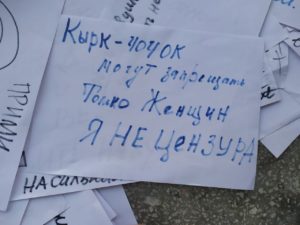 Кырк-чочок
могут запрещать
Только Женщин
Я НЕ ЦЕНЗУРА
ПРИМИ
НАСИЛЬНИ